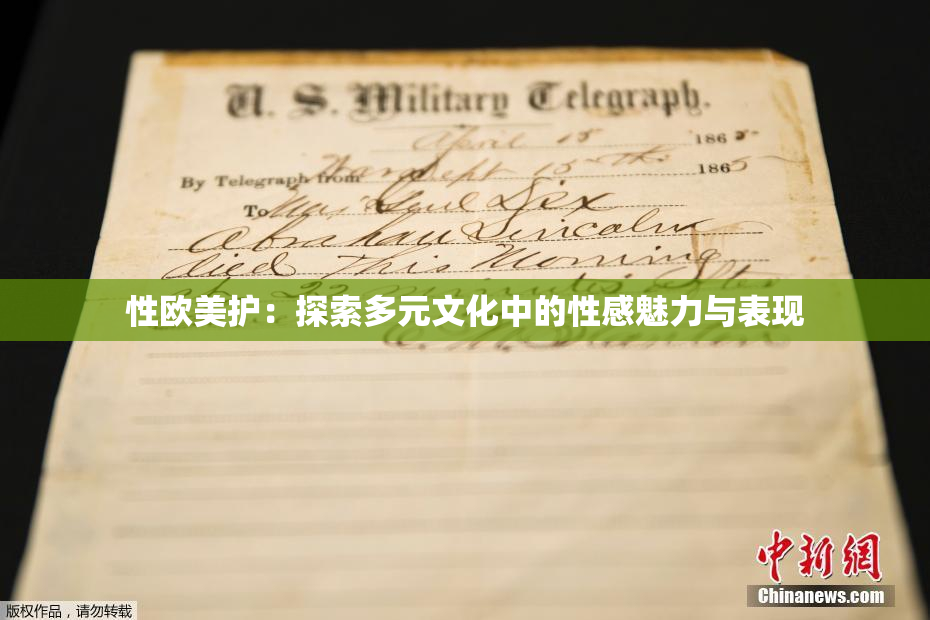 U. S. Military Telegraph.
April 15 1865
By Telegraph from War Dept 15th 1865
To Maj Genl Dix
Abraham Lincoln
died This Morning
22 minutes after
性欧美护：探索多元文化中的性感魅力与表现
E. M. Stanton
中新网
Chinanews.com
版权作品，请勿转载